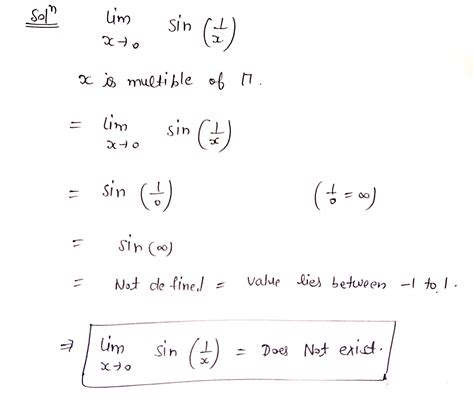 Solⁿ lim x→0 sin (1/x)
x is multible of Π.
= lim x→0 sin (1/x)
= sin (1/0) (1/0 = ∞)
= sin (∞)
= Not defined = value lies between -1 to 1.
⇒ lim x→0 sin (1/x) = Does Not exist.